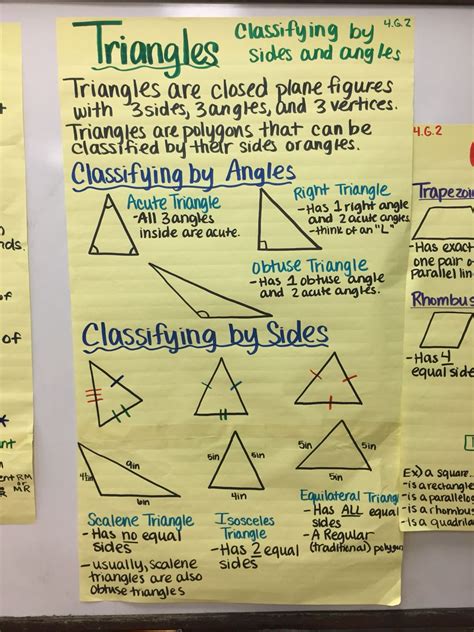 4.G.2
Triangles
Classifying by
sides and angles
Triangles are closed plane figures
with 3 sides, 3 angles, and 3 vertices.
Triangles are polygons that can be
classified by their sides or angles.
Classifying by Angles
Acute Triangle
-All 3 angles
inside are acute.
Right Triangle
-Has 1 right angle
and 2 acute angles
-think of an "L"
Obtuse Triangle
-Has 1 obtuse angle
and 2 acute angles.
Classifying by Sides
4in
9in
6in
5in
5in
4in
5in
5in
5in
Scalene Triangle
-Has no equal
sides
-usually, scalene
triangles are also
obtuse triangles
Isosceles
Triangle
-Has 2 equal
sides
Equilateral Triang
-Has ALL equal
sides
-A Regular
(traditional) polygon
4.G.2
Trapezoi
-Has exact
one pair of
parallel lin
Rhombus
-Has 4
equal side
Ex) a square
-is a rectangle
-is a parallelo
-is a rhombus
-is a quadrila
nds.
of
of
nt
ent RM
or
MR